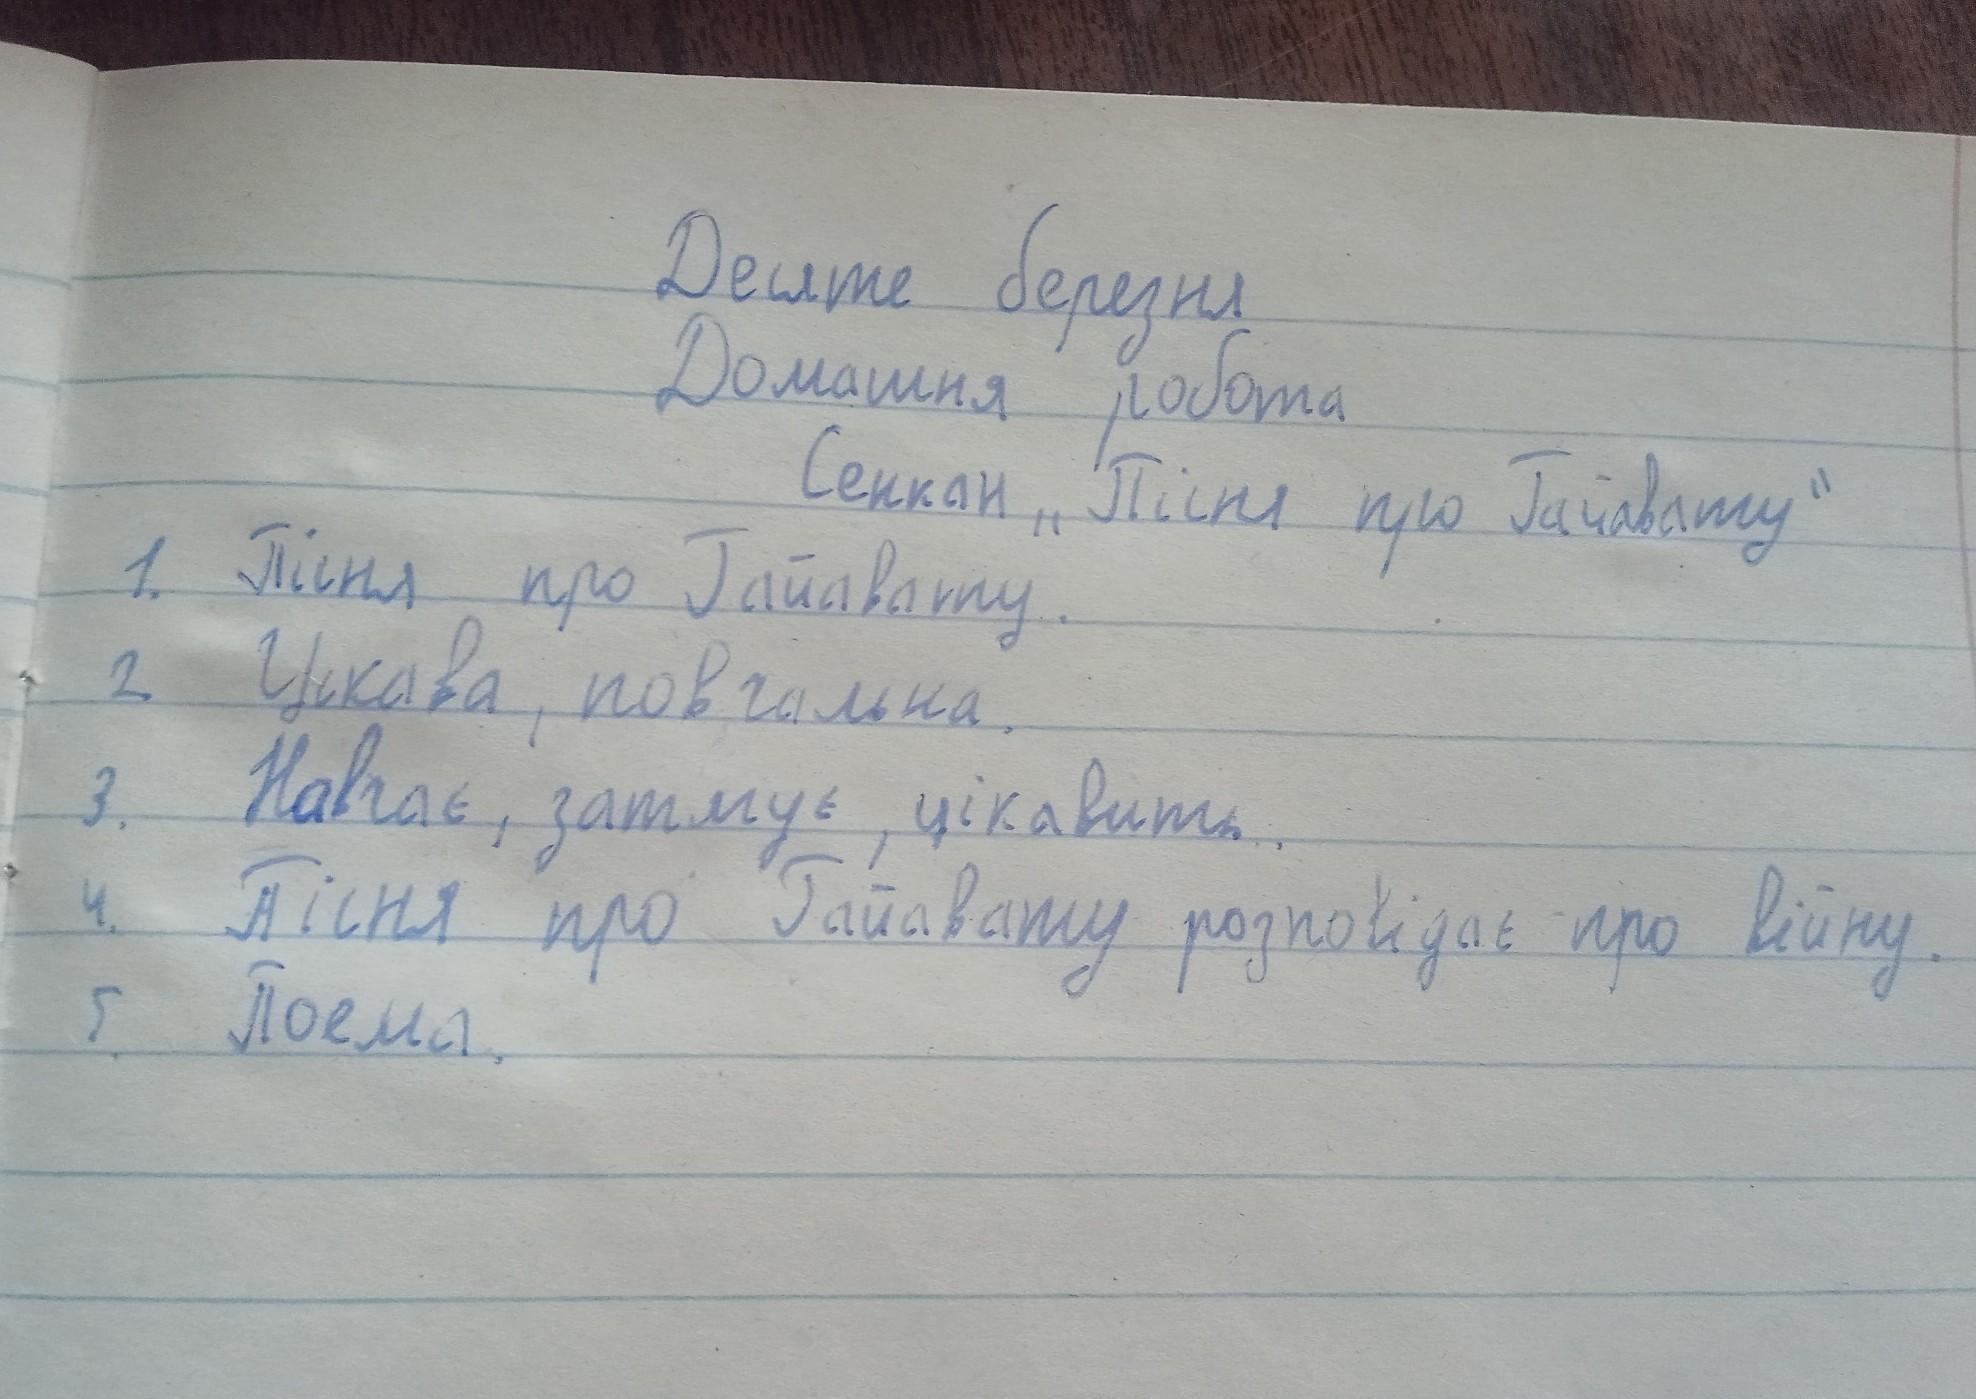 Десяте березня
Домашня робота
Сенкан „Пісня про Гайавату"
1. Пісня про Гайавату.
2. Цікава, повчальна.
3. Навчає, затмує, цікавить.
4. Пісня про Гайавату розповідає про війну.
5. Поема.